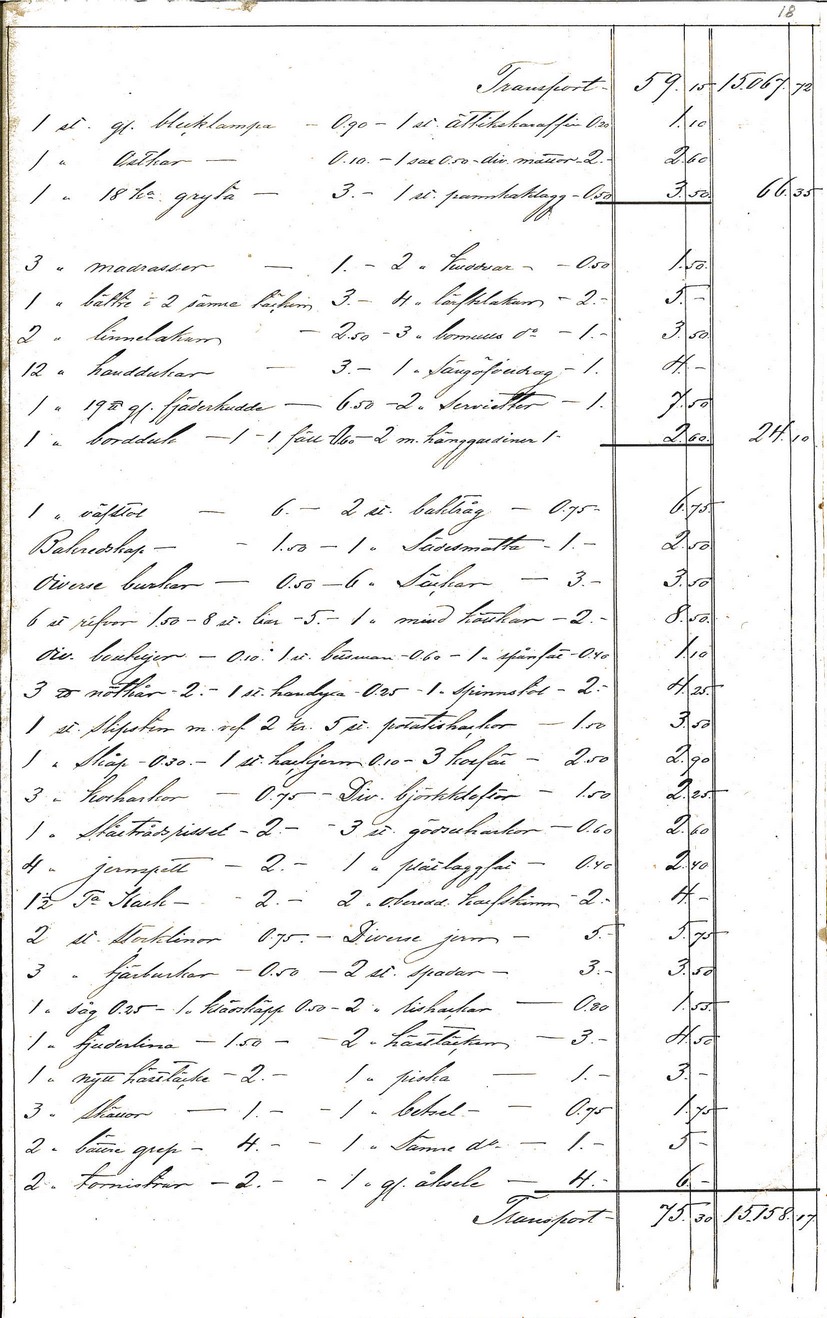 18
Transport- 59.15 15.067.72
1 st. gl. blecklampa - 0.90 - 1 st. ättikskaraffin 0.20 1.10
1 " Ostkar - 0.10. - 1 sax 0.50 - div. mattor - 2.- 2.60
1 " 18 ka. gryta - 3. - 1 st. pannkaklagg - 0.50 3.50 66.35
3 " madrasser - 1. - 2 " kuddar - - 0.50 1.50
1 " bättre i 2 sämre täcken 3. - 4 " lärftslakan - 2.- 5.-
2 " linnelakan - 2.50 - 3 " bomulls do - 1.- 3.50
12 " handdukar - 3. - 1 " Sängöfverdrag - 1. 4.-
1 " 19 gl. fjäderkudde - 6.50 - 2 " Servietter - 1. 7.50
1 " bordduk - 1 - 1 fäll 0.60 - 2 m. hänggardiner 1- 2.60 24.10
1 " väfstol - 6. - 2 st. baktråg - 0.75- 6.75
Bakredskap - - 1.50 - 1 " Sädesmatta - 1.- 2.50
Diverse burkar - 0.50 - 6 " Säckar - 3.- 3.50
6 st refvor 1.50 - 8 st. liar - 5. - 1 " mind. hösskar - 2.- 8.50
div. - 0.10. 1 st. besman - 0.60 - 1 " spånfat - 0.40 1.10
3 nöthår - 2. - 1 st. - 0.25 - 1 " Spinnstol - 2.- 4.25
1 st. Slipsten m. vef 2 kr. 5 st. potatishackor - 1.50 3.50
1 " Skåp - 0.30. - 1 st. hackjern 0.10 - 3 - 2.50 2.90
3 " - 0.75 - Div. björkklofvor - 1.50 2.25
1 " Ståltrådsrissel - 2. - 3 st. gödselharkor - 0.60 2.60
4 " jernspett - 2. - 1 " plåtlaggfat - 0.40 2.40
1½ Ta - 2. - 2 " oberedd. kalfskinn - 2.- 4.-
2 st. stocklinor 0.75. - Diverse jern - 5.- 5.75
3 " tjärburkar - 0.50 - 2 st. spadar - 3.- 3.50
1 " såg 0.25 - 1 " klädskåpp 0.50 - 2 " rishackar - 0.80 1.55
1 " tjuderlina - 1.50 - - 2 " hästtäcken - 3.- 4.50
1 " nytt hästtäcke - 2. - 1 " piska - 1.- 3.-
3 " Skällor - 1. - - 1 " betsel - - 0.75 1.75
2 " bättre grep - 4. - - 1 " Sämre do - 1.- 5-
2 " tornistrar - 2. - - 1 " gl. åksele - 4.- 6-
Transport- 75.30 15.158.17